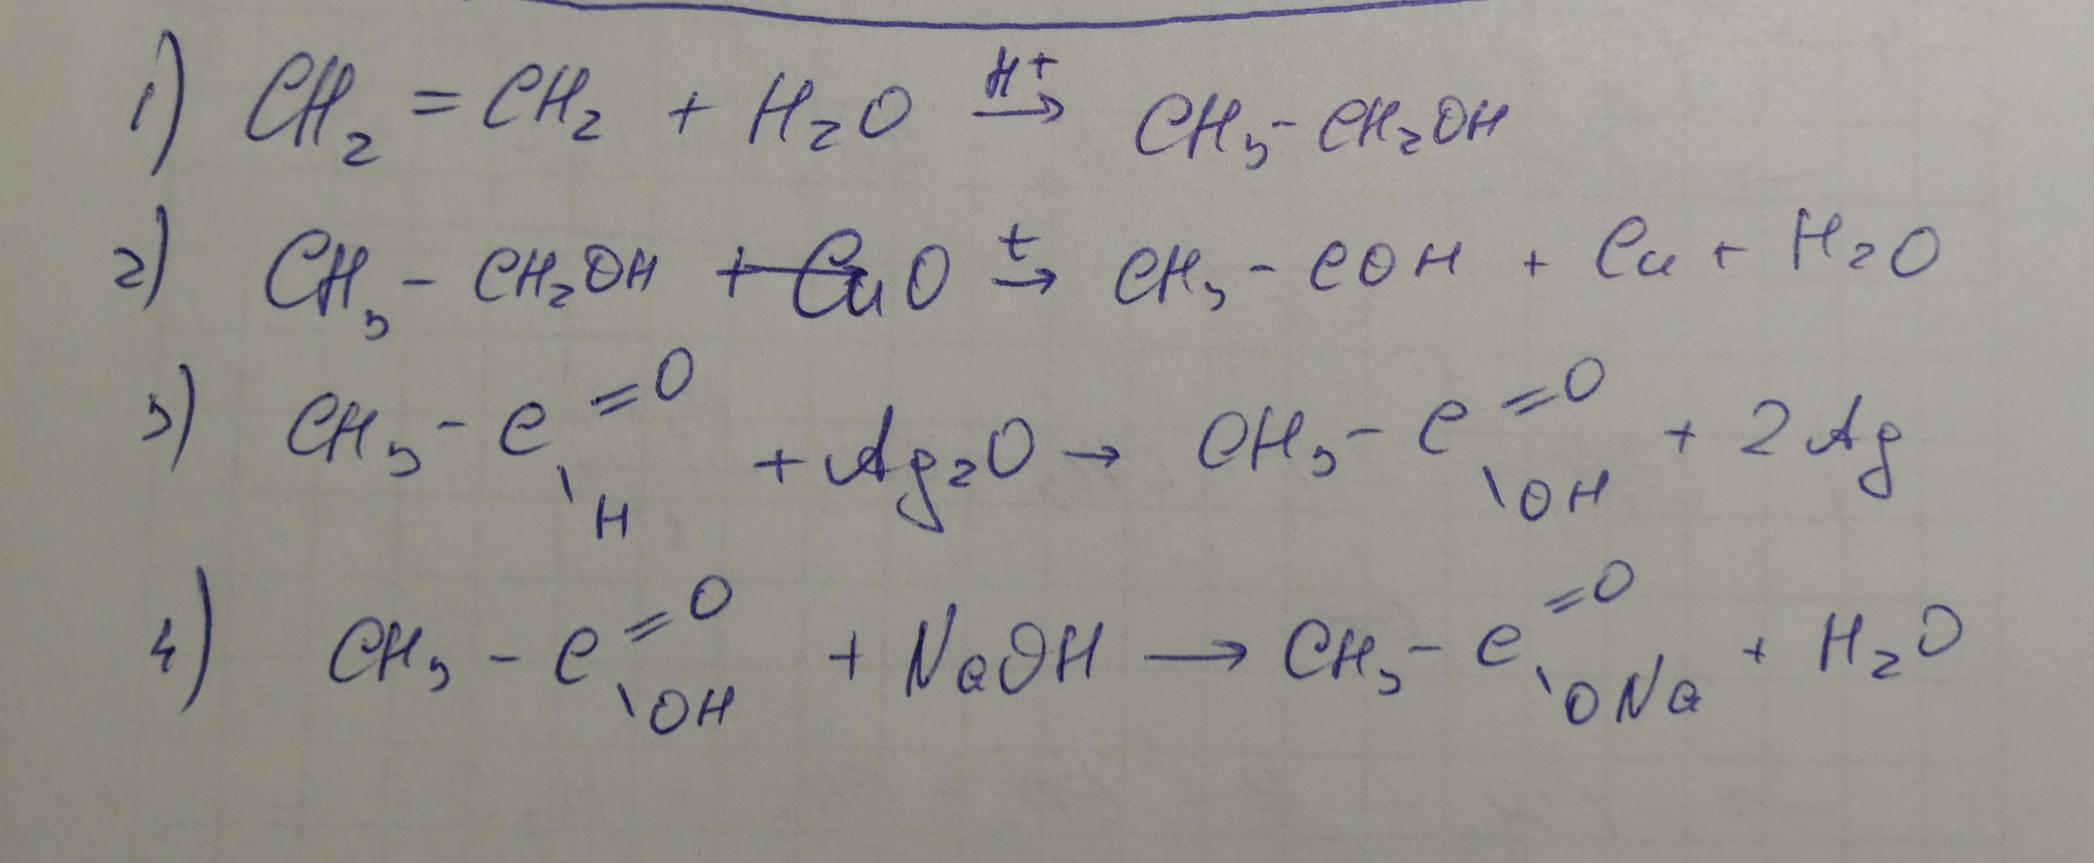 1) CH₂ = CH₂ + H₂O →(H⁺) CH₃ - CH₂OH
2) CH₃ - CH₂OH + CuO →(t) CH₃ - COH + Cu + H₂O
3) CH₃ - C(=O)\H + Ag₂O → CH₃ - C(=O)\OH + 2Ag
4) CH₃ - C(=O)\OH + NaOH → CH₃ - C(=O)\ONa + H₂O